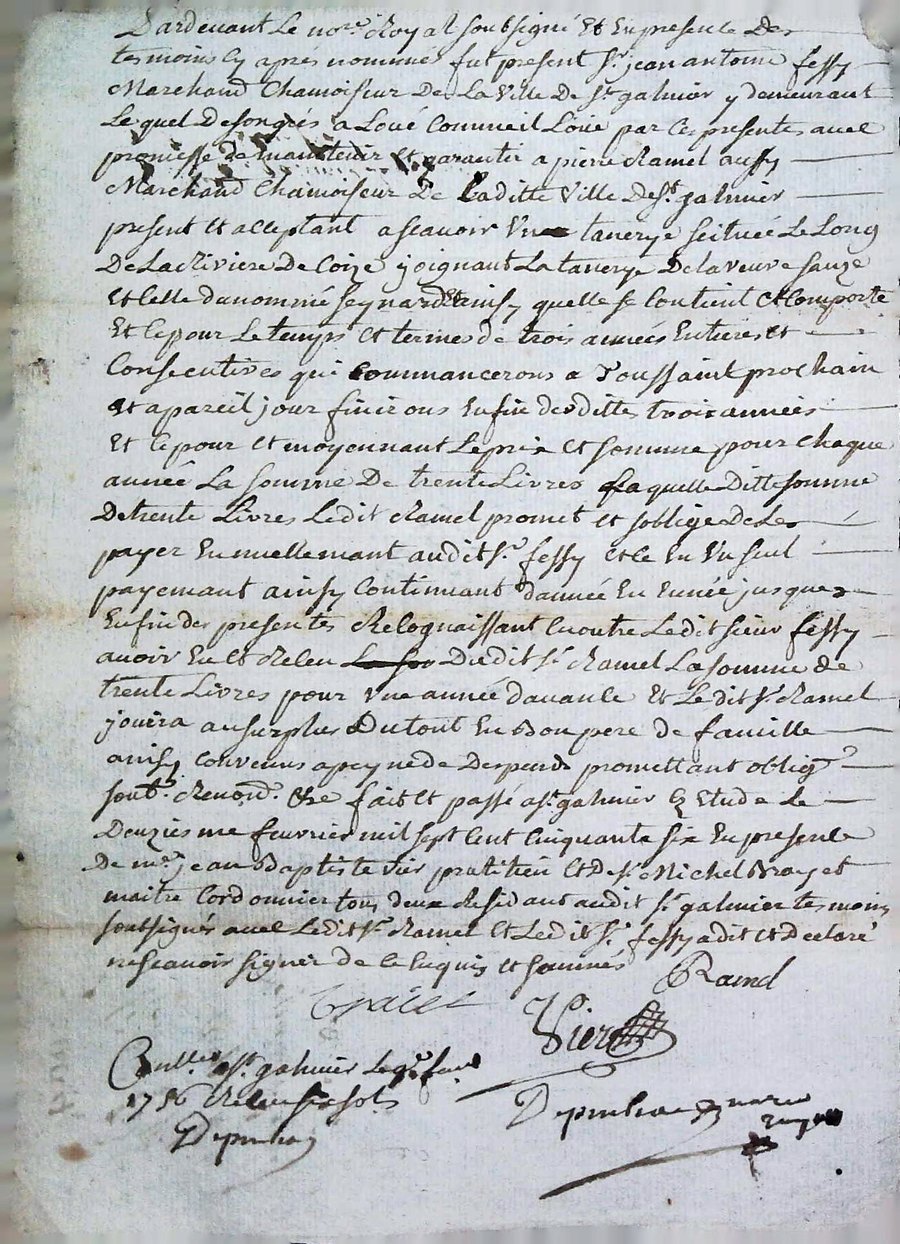 Pardevant Le no.re Royal soubsigné Et En presence Des
temoins Cy aprés nommés fut present Sr. jean antoine fessy
Marchand Chamoiseur De La Ville De St. galmier y demeurant
Le quel De son grés a Loué Comme il Loue par Ces presentes avec
promesse de maintenir Et garantir a pierre Ramel aussy
Marchand Chamoiseur De Laditte Ville De St. galmier
present Et acceptant ascavoir Une tanerye scituée Le Long
De La Riviere De Coize joignant La tanerye De La veuve Sauze
Et Celle du nommé Seynard Et ainsy quelle se Contient Et Comporte
Et Ce pour Le temps Et termes de trois années Entieres Et
Consecutives qui Commancerons a Toussaint prochain
Et a pareil jour finirons En fin des dittes trois années
Et Ce pour Et moyennant Le prix Et somme pour Chaque
année La somme De trente Livres Laquelle Ditte somme
De trente Livres Ledit Ramel promet Et soblige De Les
payer Enuellemant audit Sr. fessy Et Ce En Un seul
payemant ainsy Continuant dannée En Ennée jusques
En fin des presentes Recognaissant En outre Ledit sieur fessy
avoir Eu Et Receu Dudit Sr. Ramel La somme de
trente Livres pour Une année davance Et Ledit Sr. Ramel
jouira au surplus Du tout En Bon pere de famille
ainsy Convenus a peyne de Despends promettant oblig.
soub.t Renon.t Etc fait Et passé a St. galmier Ez Etude Le
Deuziesme fevrier mil sept Cent Cinquante six En presence
De me. jean Baptiste Vier pratitien Et De Sr. Michel Brayet
maitre Cordonnier tous deux Residant audit St. galmier temoins
soubsignés avec Ledit Sr. Ramel Et Ledit Sr. fessy a dit Et Declaré
ne scavoir signer de Ce Enquis Et sommés
Ramel
Vier
a St. galmier Le
1756 Receu